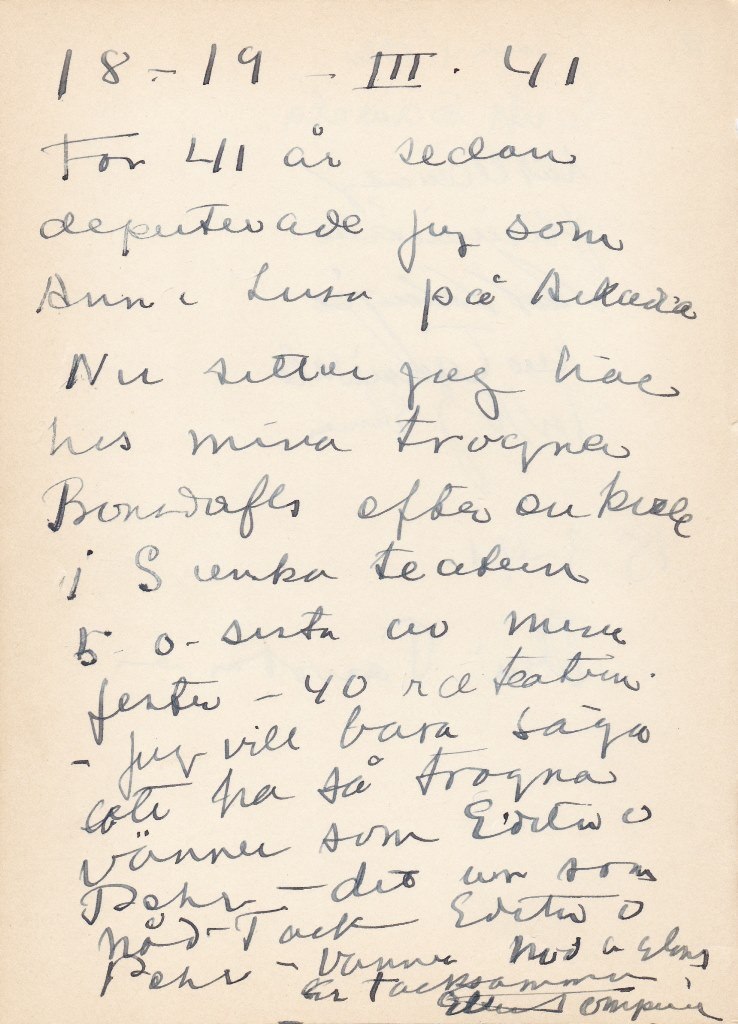 18 - 19 - III. 41
För 41 år sedan
deputerade jag som
Anna Lisa på Arkadia
Nu sitter jag här
hos mina trogna
Bonsdorffs efter en kväll
i Svenska teatern
5 0- sista av mina
fester - 40 teatern.
- Jag vill bara säga
att ha så trogna
vänner som Edith o
Pehr - det är som
nåd - Tack Edith o
Pehr - Vänner
Er tacksamma